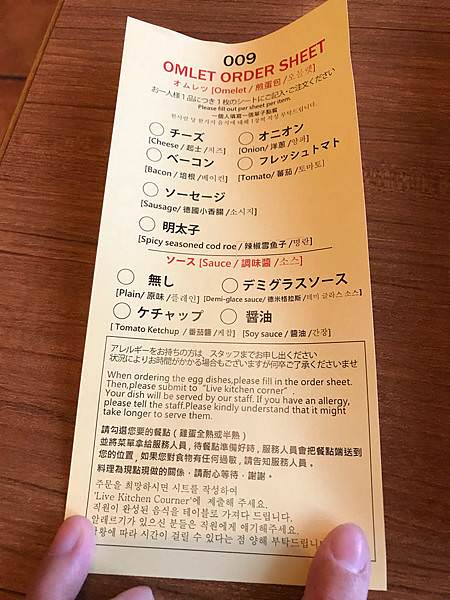 009
OMLET ORDER SHEET
オムレツ [Omelet / 煎蛋包 / 오믈렛]
お一人様1品につき1枚のシートにご記入・ご注文ください
Please fill out per sheet per item.
一個人填寫一張單子點餐
チーズ オニオン
[Cheese / 起士 / 치즈] [Onion/ 洋蔥 / 양파]
ベーコン フレッシュトマト
[Bacon / 培根 / 베이컨] [Tomato/ 蕃茄 /토마토]
ソーセージ
[Sausage/ 德國小香腸 /소시지]
明太子
[Spicy seasoned cod roe / 辣椒雪魚子 /명란]
ソース [Sauce / 調味醬 /소스]
無し デミグラスソース
[Plain/ 原味 /플레인] [Demi-glace sauce/ 德米格拉斯 /데미 글라스 소스]
ケチャップ 醤油
[ Tomato Ketchup / 番茄醬 /케첩] [Soy sauce / 醬油 /간장]
アレルギーをお持ちの方は スタッフまでお申し出ください
状況によりお時間がかかる場合もございますが何卒ご了承くださいませ
When ordering the egg dishes,please fill in the order sheet.
Then,please submit to "Live kitchen corner".
Your dish will be served by our staff. If you have an allergy,
please tell the staff.Please kindly understand that it might
take longer to serve them.
請勾選您要的餐點（雞蛋全熟或半熟）
並將菜單拿給服務人員，待餐點準備好時，服務人員會把餐點端送到
您的位置，如果您對食物有任何過敏，請告知服務人員。
料理為現點現做的關係，請耐心等待，謝謝。
주문을 희망하시면 시트를 작성하여
'Live Kitchen Courner'에 제출해 주세요.
직원이 완성된 음식을 테이블로 가져다 드립니다.
알레르기가 있으신 분들은 직원에게 얘기해주세요.
상황에 따라 시간이 걸릴 수 있다는 점 양해 부탁드립니다.